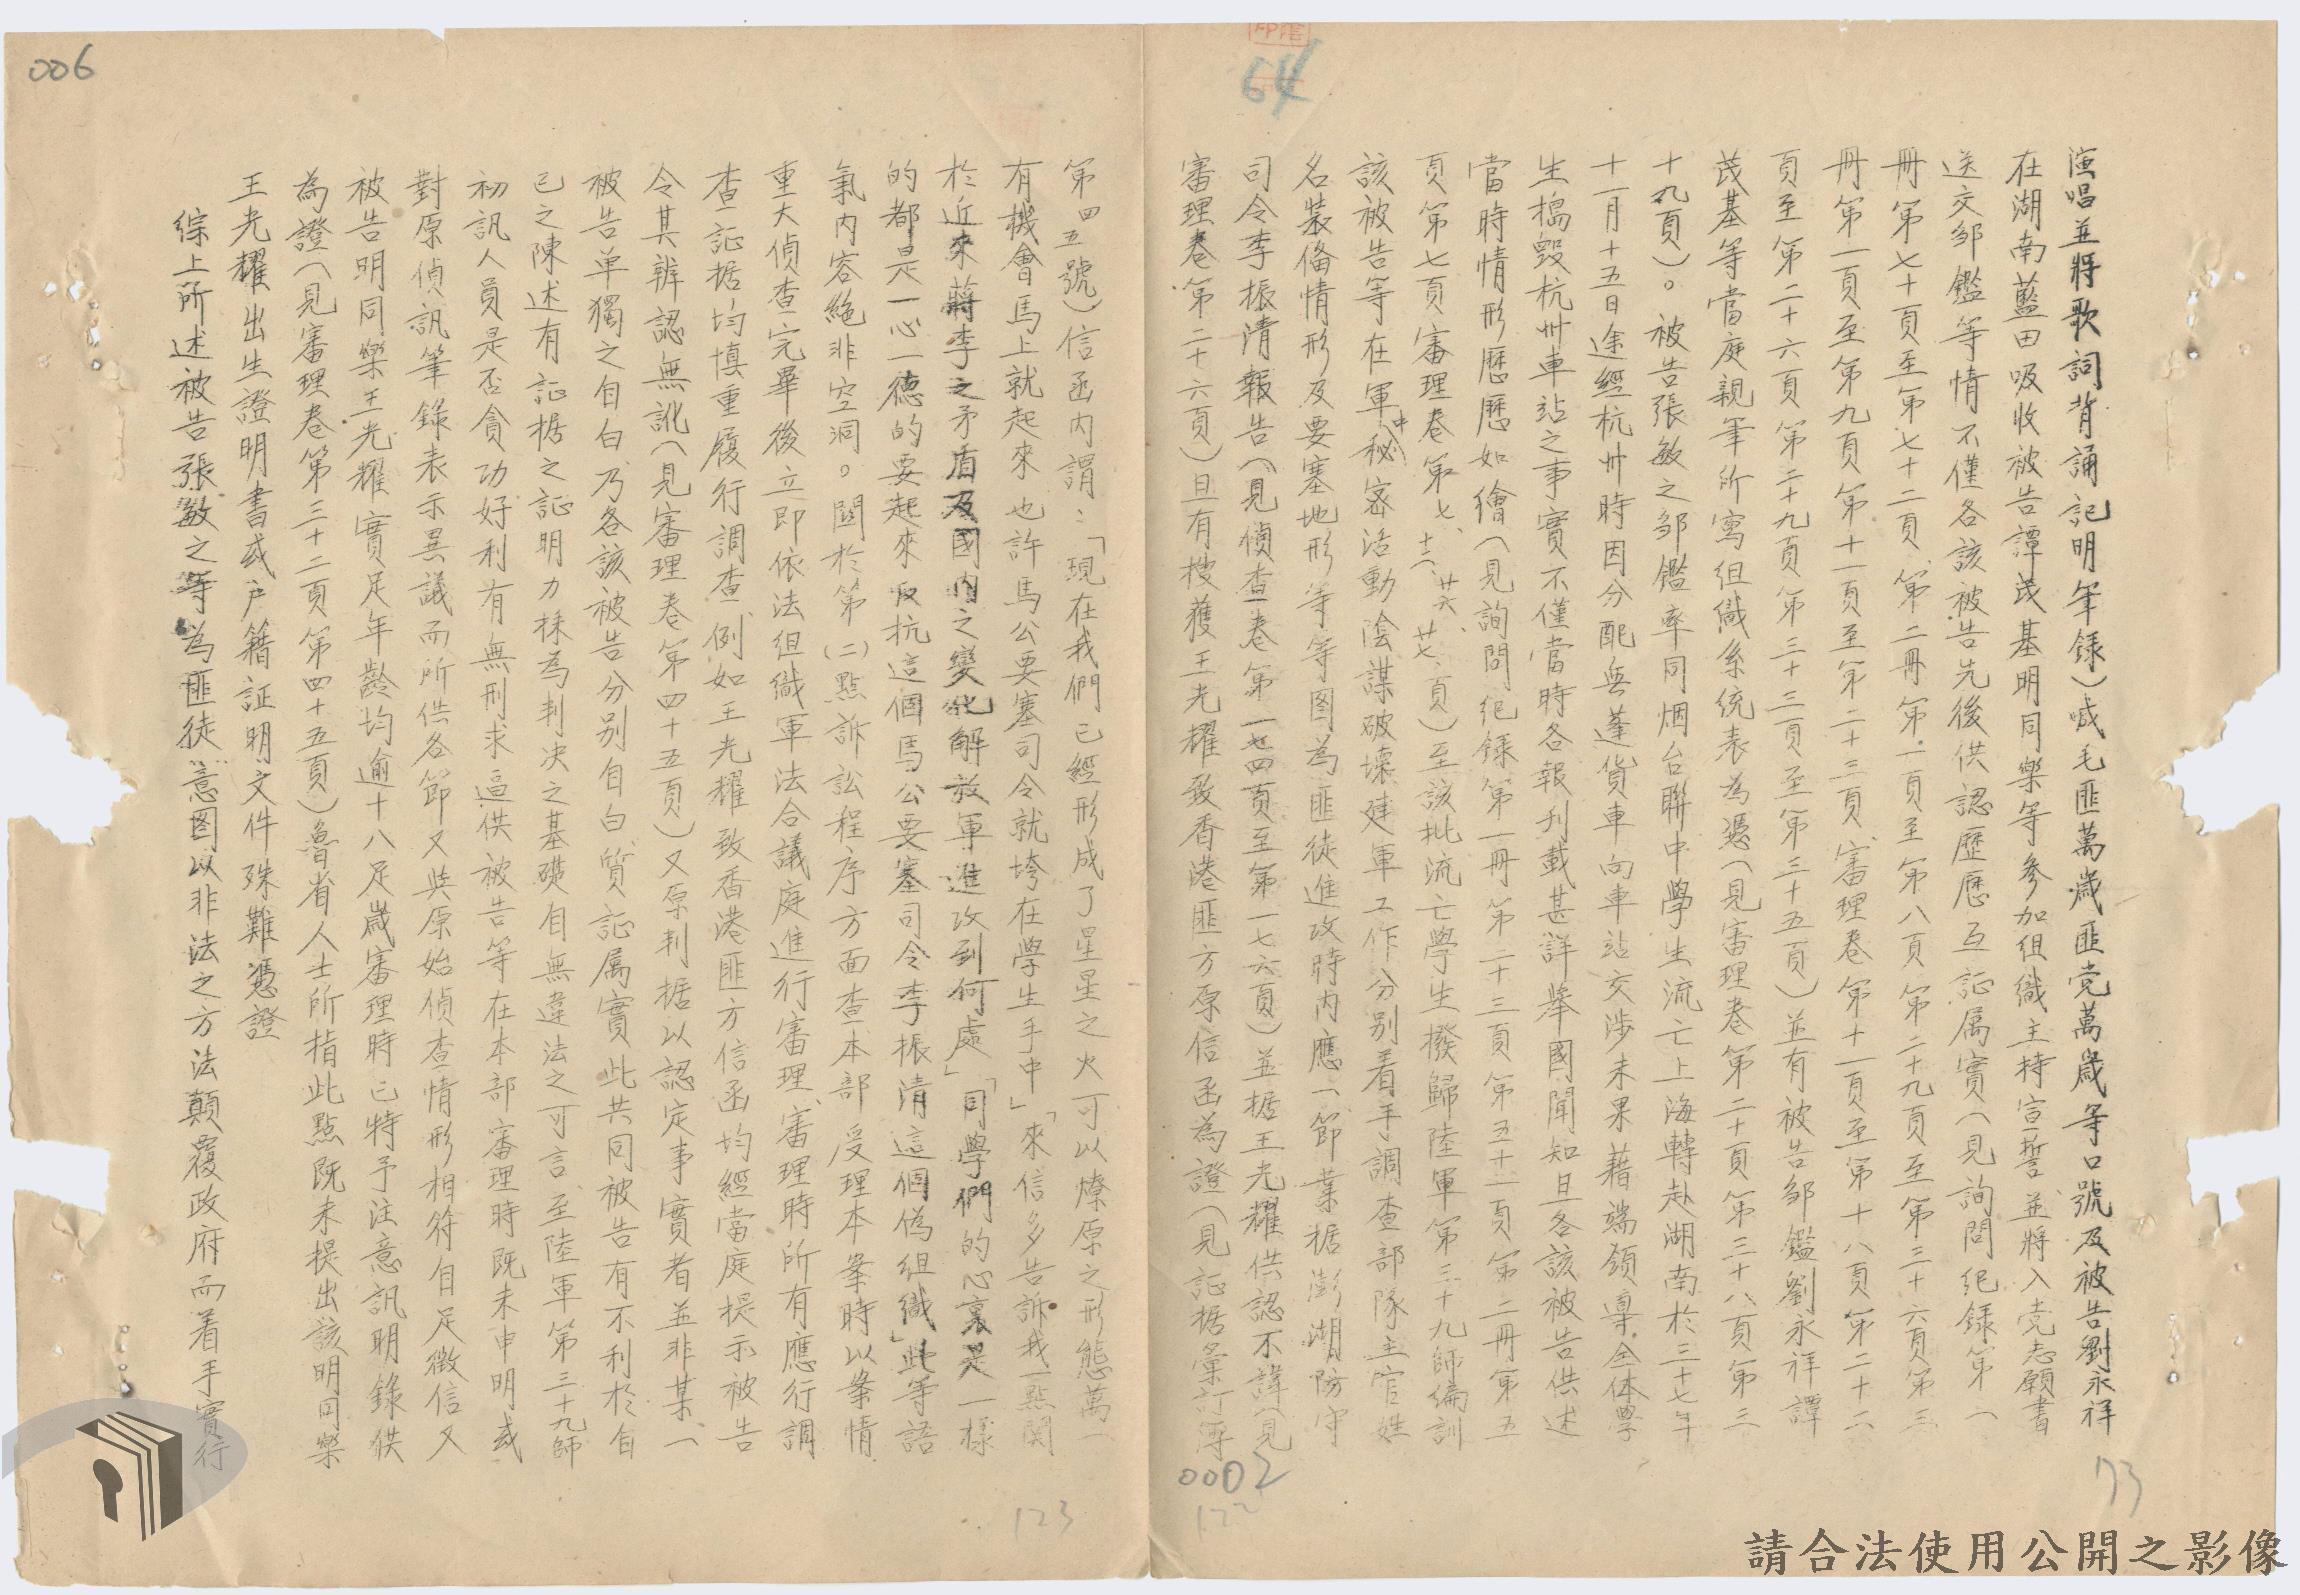 006
64
演唱並將歌詞背誦記明筆錄）喊毛匪萬歲匪党萬歲等口號及被告劉永祥
在湖南藍田吸收被告譚茂基明同樂等參加組織主持宣誓並將入党志願書
送交邹鑑等情不僅各該被告先後供認歷歷互証属實（見詢問紀錄第一
冊第七十頁至第七十二頁、第二冊第一頁至第八頁第二十九頁至第三十六頁第三
冊第一頁至第九頁第十一頁至第二十三頁、審理卷第十一頁至第十八頁第二十二
頁至第二十六頁第二十九頁第三十三頁至第三十五頁）並有被告邹鑑劉永祥譚
茂基等當庭親筆所寫組織系統表為憑（見審理卷第二十頁第三十八頁第三
十九頁）。被告張敏之邹鑑率同烟台聯中學生流亡上海轉赴湖南於三十七年
十一月十五日途經杭州時因分配無蓬貨車向車站交涉未果藉端領導全体學
生搗毀杭州車站之事實不僅當時各報刊載甚詳舉國聞知且各該被告供述
當時情形歷歷如繪（見詢問紀錄第一冊第二十三頁第五十一頁第二冊第五
頁第七頁審理卷第七、十六、廿六、廿七、頁）至該批流亡學生撥歸陸軍第三十九師編訓
該被告等在軍中秘密活動陰謀破壞建軍工作分别着手調查部隊主官姓
名裝俻情形及要塞地形等等图為匪徒進攻時内應一節業据澎湖防守
司令李振清報告（見偵查卷第一七四頁至第一七六頁）並据王光耀供認不諱（見
審理卷第二十六頁）且有搜獲王光耀致香港匪方原信函為證（見証据彙訂簿
第四五號）信函内謂：「現在我們已經形成了星星之火可以燎原之形態萬一
有機會馬上就起來也許馬公要塞司令就垮在學生手中」「來信多告訴我一點関
於近來蔣李之矛盾及國内之變化解放軍進攻到何處」「同學們的心裏是一樣
的都是一心一德的要起來反抗這個馬公要塞司令李振清這個偽組織」此等語
氣内容絕非空洞。関於第（二）點訴訟程序方面查本部受理本案時以案情
重大偵查完畢後立即依法組織軍法合議庭進行審理、審理時所有應行調
查証据均慎重履行調查、例如王光耀致香港匪方信函均經當庭提示被告
令其辨認無訛（見審理卷第四十五頁）又原判据以認定事實者並非某一
被告单獨之自白乃各該被告分别自白、質証属實此共同被告有不利於自
己之陳述有証据之証明力採為判决之基礎自無違法之可言、至陸軍第三十九師
初訊人員是否貪功好利有無刑求逼供被告等在本部審理時既未申明或
對原偵訊筆錄表示異議而所供各節又與原始偵查情形相符自足徵信又
被告明同樂王光耀實足年齡均逾十八足歲審理時已特予注意訊明錄供
為證（見審理卷第三十二頁第四十五頁）魯省人士所指此點既未提出該明同樂
王光耀出生證明書或户籍証明文件殊難憑證
綜上所述被告張敏之等為匪徒意图以非法之方法顛覆政府而着手實行
0002
122
123
73
請合法使用公開之影像